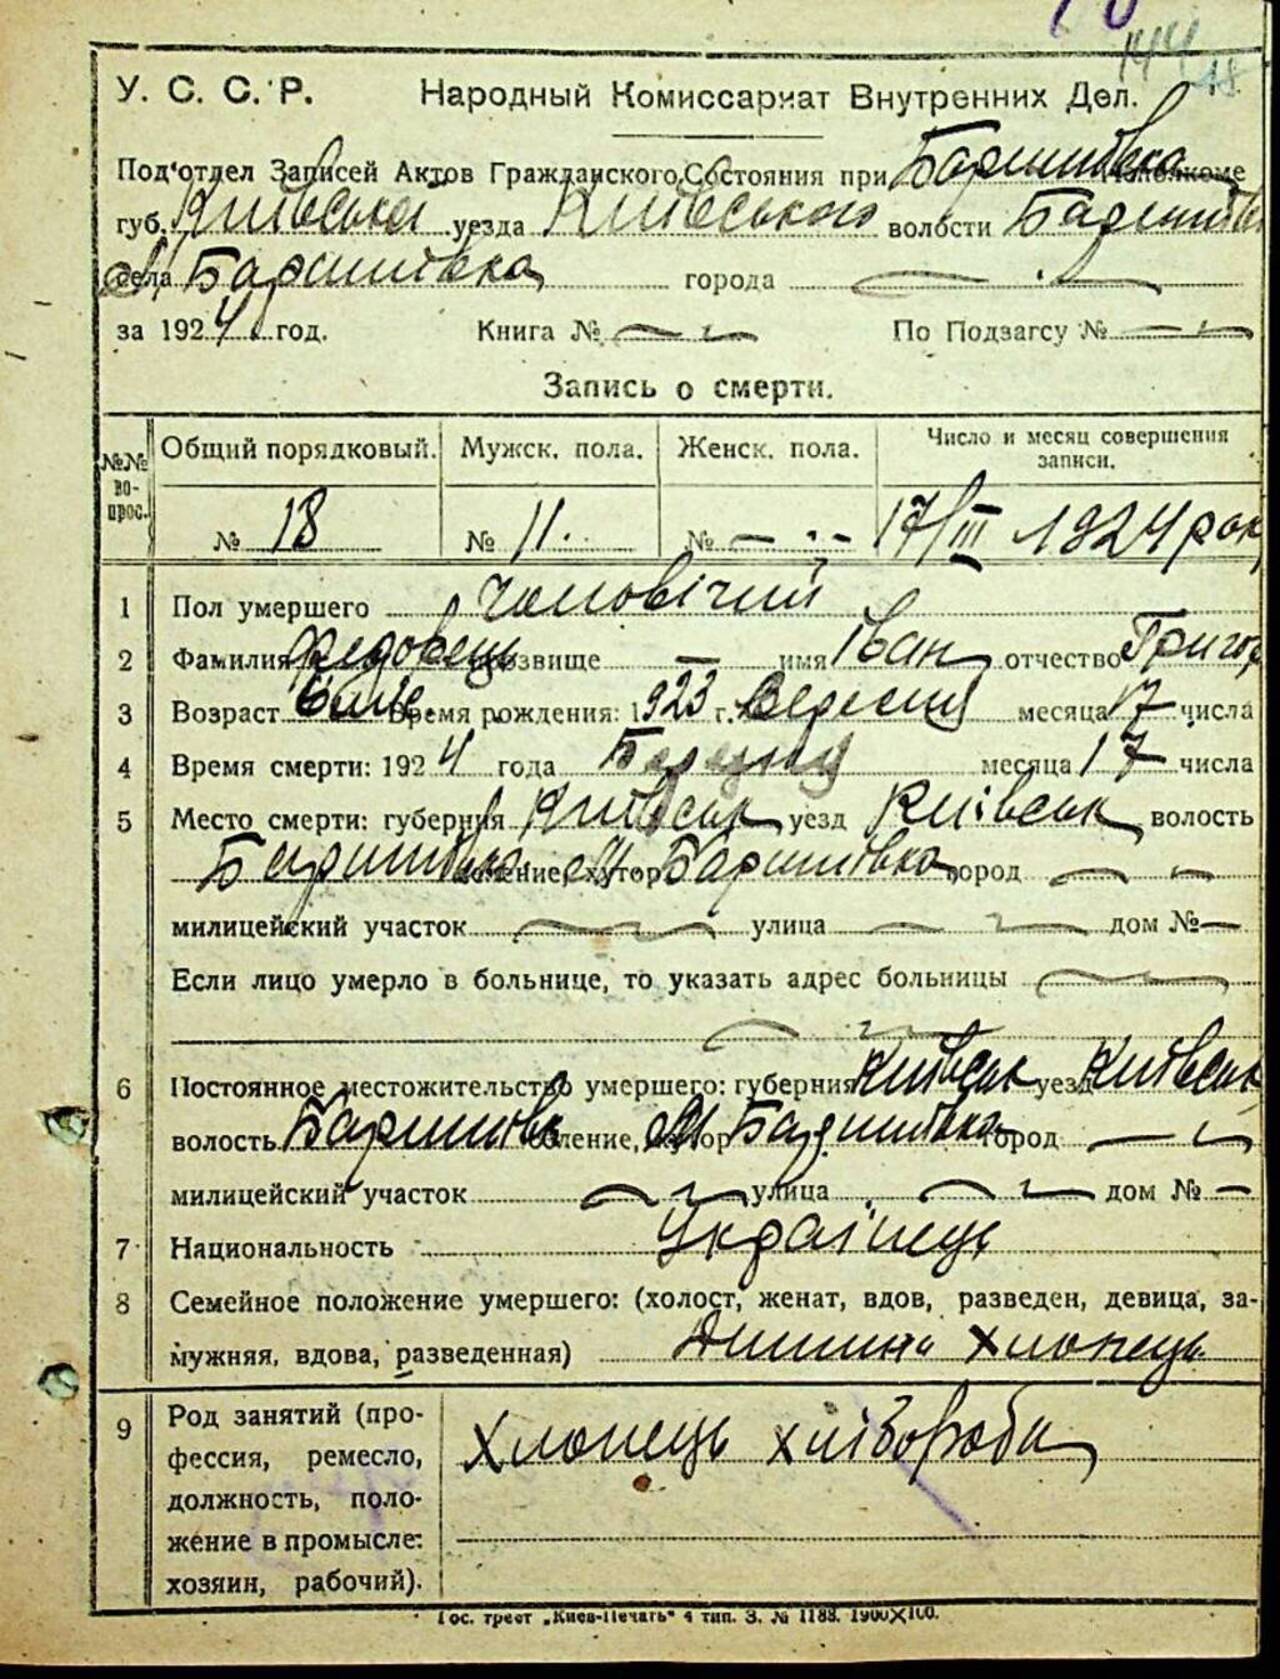 144 18
У. С. С. Р. Народный Комиссариат Внутренних Дел.
Под'отдел Записей Актов Гражданского Состояния при Баришівка Исполкоме
губ. Київської уезда Київського волости Баришівка
села М. Баришівка города
за 1924 год. Книга № По Подзагсу №
Запись о смерти.
№№ вопрос. Общий порядковый. Мужск. пола. Женск. пола. Число и месяц совершения записи.
№ 18 № 11. № — 17/III 1924 рок
1 Пол умершего Чоловічий
2 Фамилия Федовець прозвище — имя Іван отчество Григор
3 Возраст 6 міс. Время рождения: 1923 г. Вересня месяца 17 числа
4 Время смерти: 1924 года Березня месяца 17 числа
5 Место смерти: губерния Київськ уезд Київськ волость
Баришівка селение, хутор М. Баришівка город
милицейский участок улица дом № —
Если лицо умерло в больнице, то указать адрес больницы
6 Постоянное местожительство умершего: губерния Київськ уезд Київськ
волость Баришівк селение, хутор М Баришівка город —
милицейский участок улица дом № —
7 Национальность Українець
8 Семейное положение умершего: (холост, женат, вдов, разведен, девица, за-
мужняя, вдова, разведенная) Дитина хлопець
9 Род занятий (про-
фессия, ремесло,
должность, поло-
жение в промысле:
хозяин, рабочий).
Хлопець хлівороба
Гос. трест „Киев-Печать" 4 тип. З. № 1188. 1900X100.